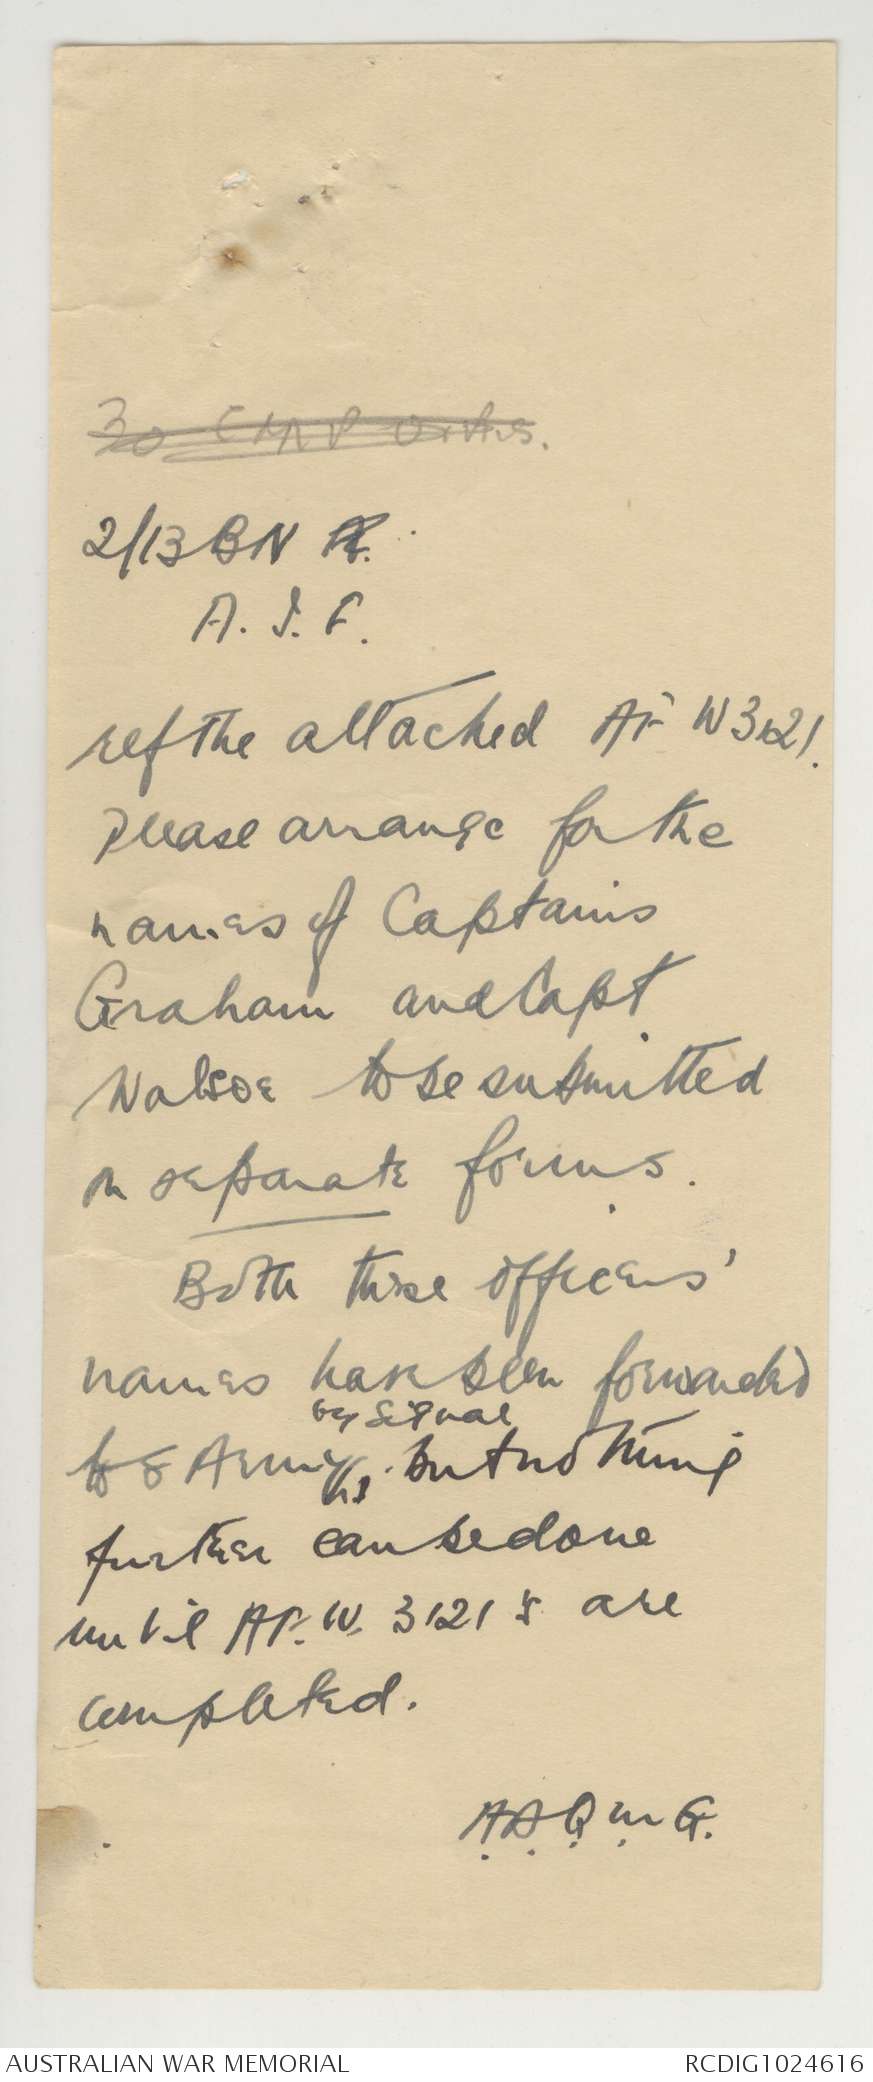 2/13 BN
A. I. F.
ref the attached AF W3121.
Please arrange for the
names of Captains
Graham and Capt
Walsoe to be submitted
on separate forms.
Both these officers'
names have been forwarded
by signal
to 8 Army but nothing
further can be done
until AF. W. 3121s are
completed.
A A Q M G.
AUSTRALIAN WAR MEMORIAL
RCDIG1024616